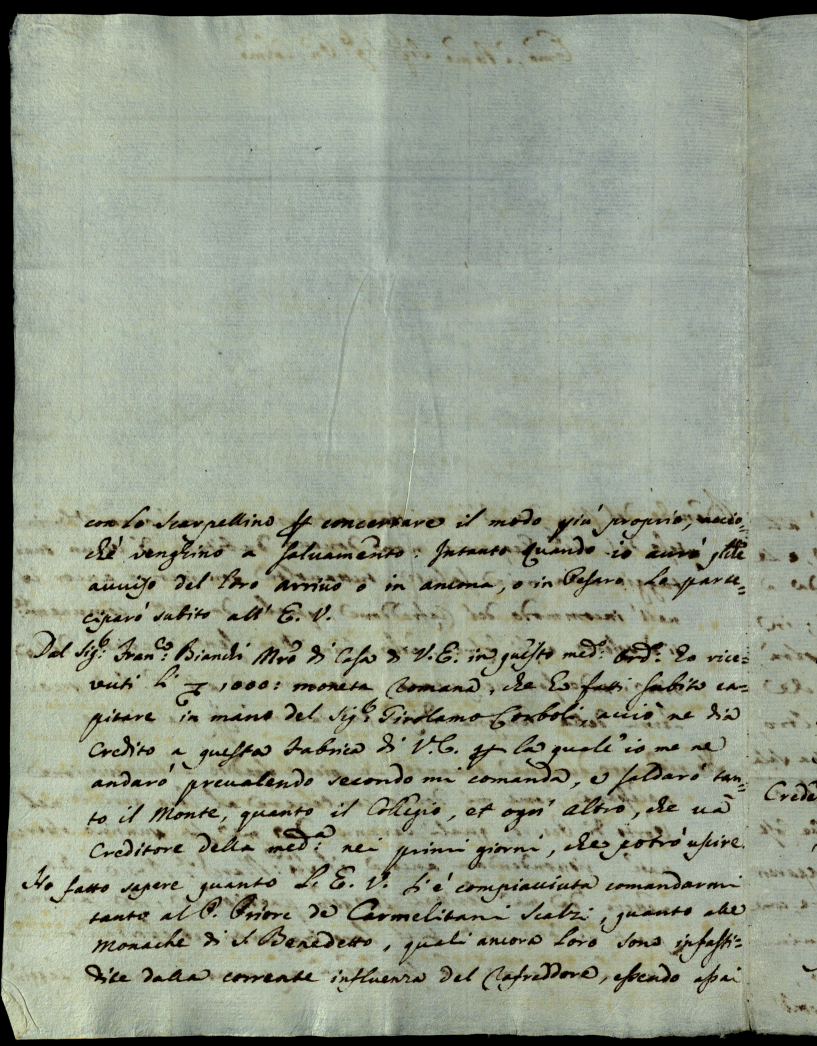 con lo Scarpellino p concertare il modo più proprio, accio=
ché venghino a salvamento: Intanto quando io auró
auuiso del loro arriuo o in ancona, o in Pesaro lo parte=
ciparó subito all' E. V.
Dal Sig.r Fran.co Bianchi Mro di Casa di V. E. in questo med.o Ord.o ho rice=
vuti li 1000: moneta Romana, che ho fatti subito ca=
pitare in mano del Sig.r Girolamo Corboli, acciò ne dia
Credito a questa Fabrica di V. E. p la quale io me ne
andaró prevalendo secondo mi comanda, e saldaró tan=
to il Monte, quanto il Collegio, et ogn' altro, che va
Creditore della med.a nei primi giorni, che potró uscire.
Ho fatto sapere quanto l' E. V. s' é compiacciuta comandarmi
tanto al P. Priore de Carmelitani Scalzi, quanto alle
Monache di S. Benedetto, quali ancora loro sono infasti=
dite dalla corrente influenza del Rafreddore, essendo assai